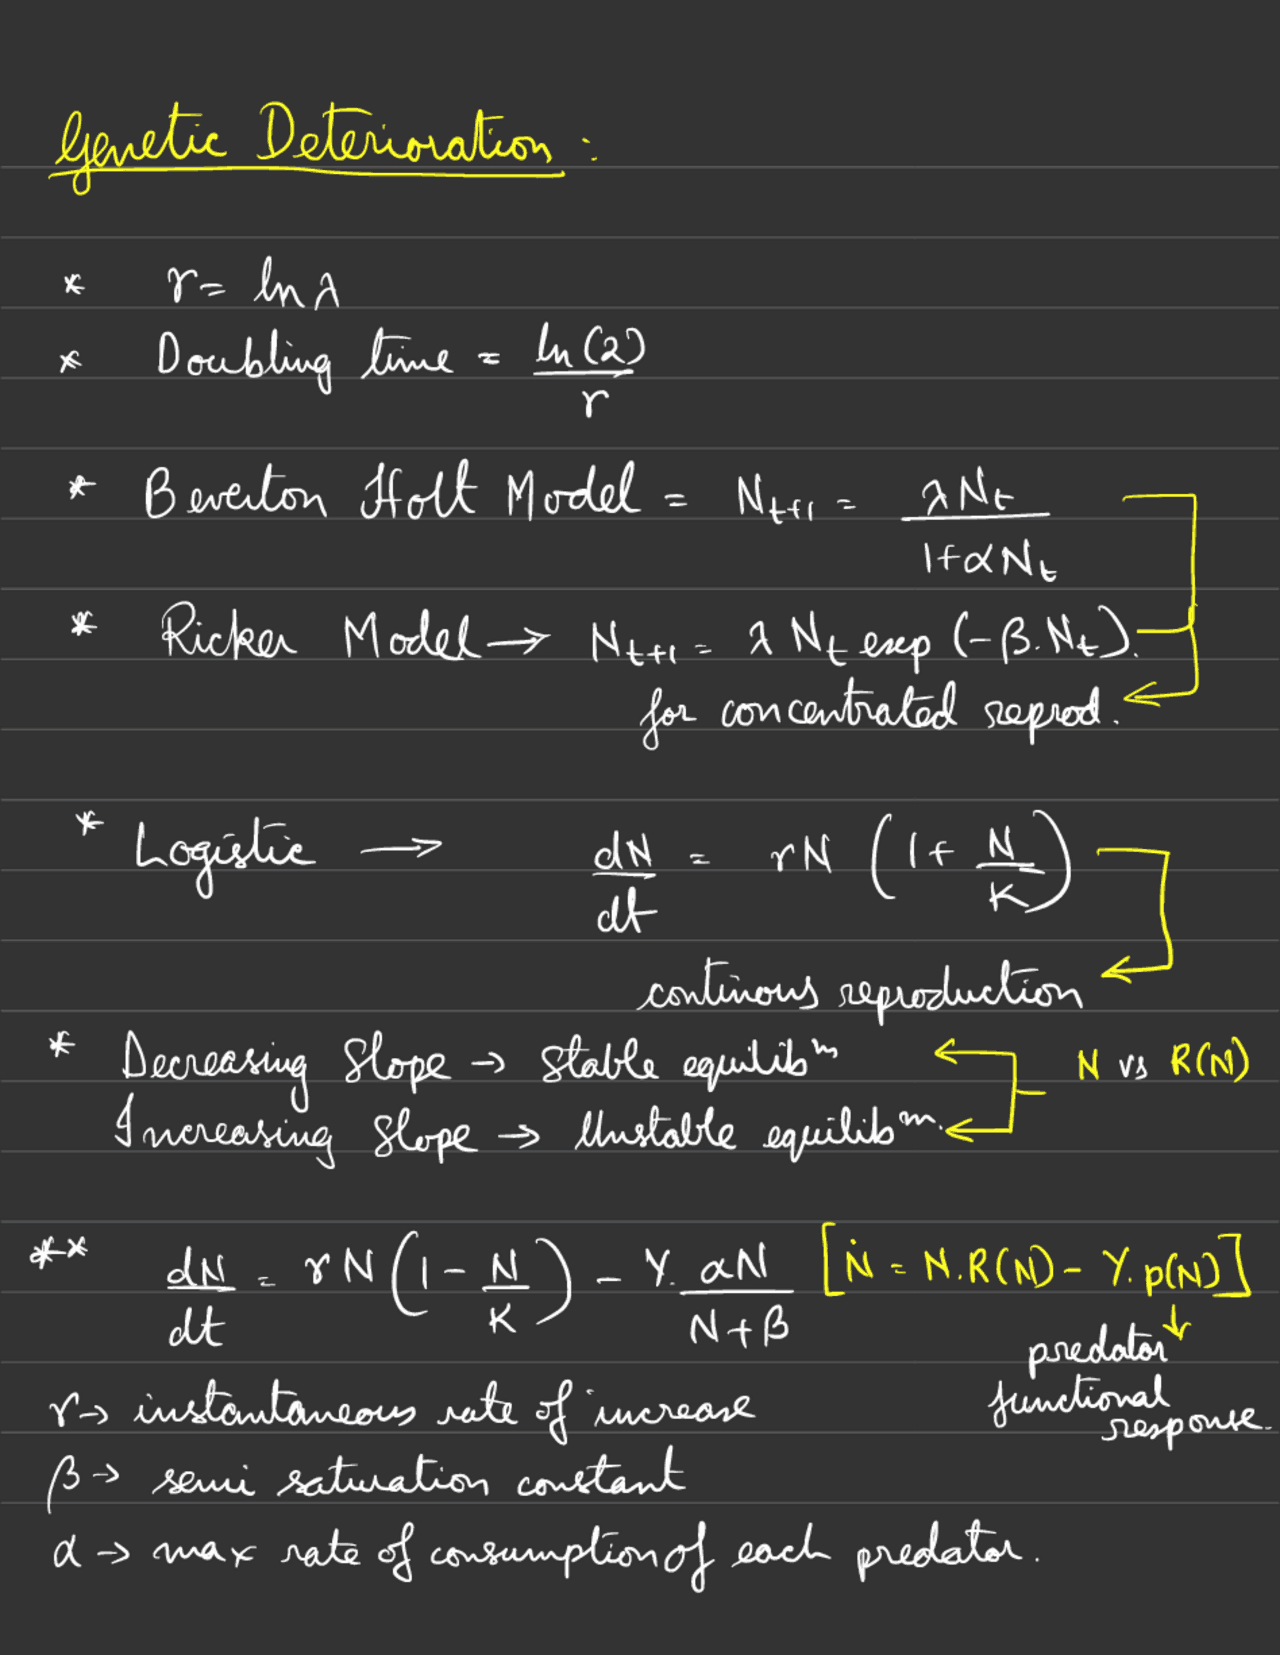 Genetic Deterioration :
* r = ln λ
* Doubling time = ln(2) / r
* Beverton Holt Model = N_{t+1} = λN_t / 1+αN_t
* Ricker Model → N_{t+1} = λ N_t exp (-β.N_t).
for concentrated reprod.
* Logistic → dN/dt = rN (1 + N/K)
continous reproduction
* Decreasing Slope → Stable equilib^m N vs R(N)
Increasing Slope → Unstable equilib^m.
** dN/dt = rN(1 - N/K) - Y. αN / N+β [Ṅ = N.R(N) - Y.p(N)]
↓
predator
functional
response.
r → instantaneous rate of increase
β → semi saturation constant
α → max rate of consumption of each predator.